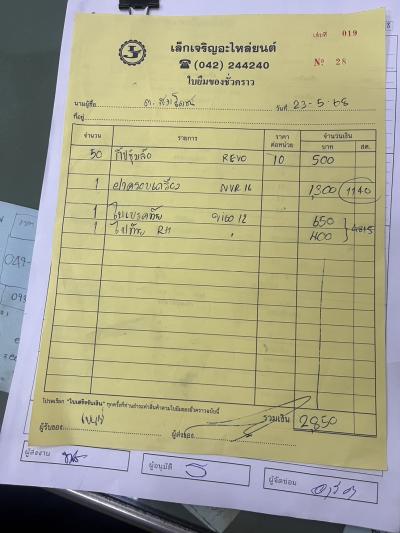 เล่มที่ 019
เล็กเจริญอะไหล่ยนต์
☎ (042) 244240
Nº 28
ใบยืมของชั่วคราว
นามผู้ซื้อ
วันที่ 23-5-68
ที่อยู่
จำนวน รายการ ราคาต่อหน่วย จำนวนเงิน
บาท สต.
50 กิ๊ปซุ้มล้อ REVO 10 500
1 1,300 1140
1 ไฟเบรคท้าย 650
1 ไฟท้าย RH " 400
โปรดเรียก "ใบเสร็จรับเงิน" ทุกครั้งที่ท่านชำระค่าสินค้าตามใบยืมของชั่วคราวฉบับนี้
รวมเงิน 2,850
ผู้รับของ
ผู้ส่งของ
ผู้ส่งงาน
ผู้อนุมัติ
ผู้จัดซ่อม